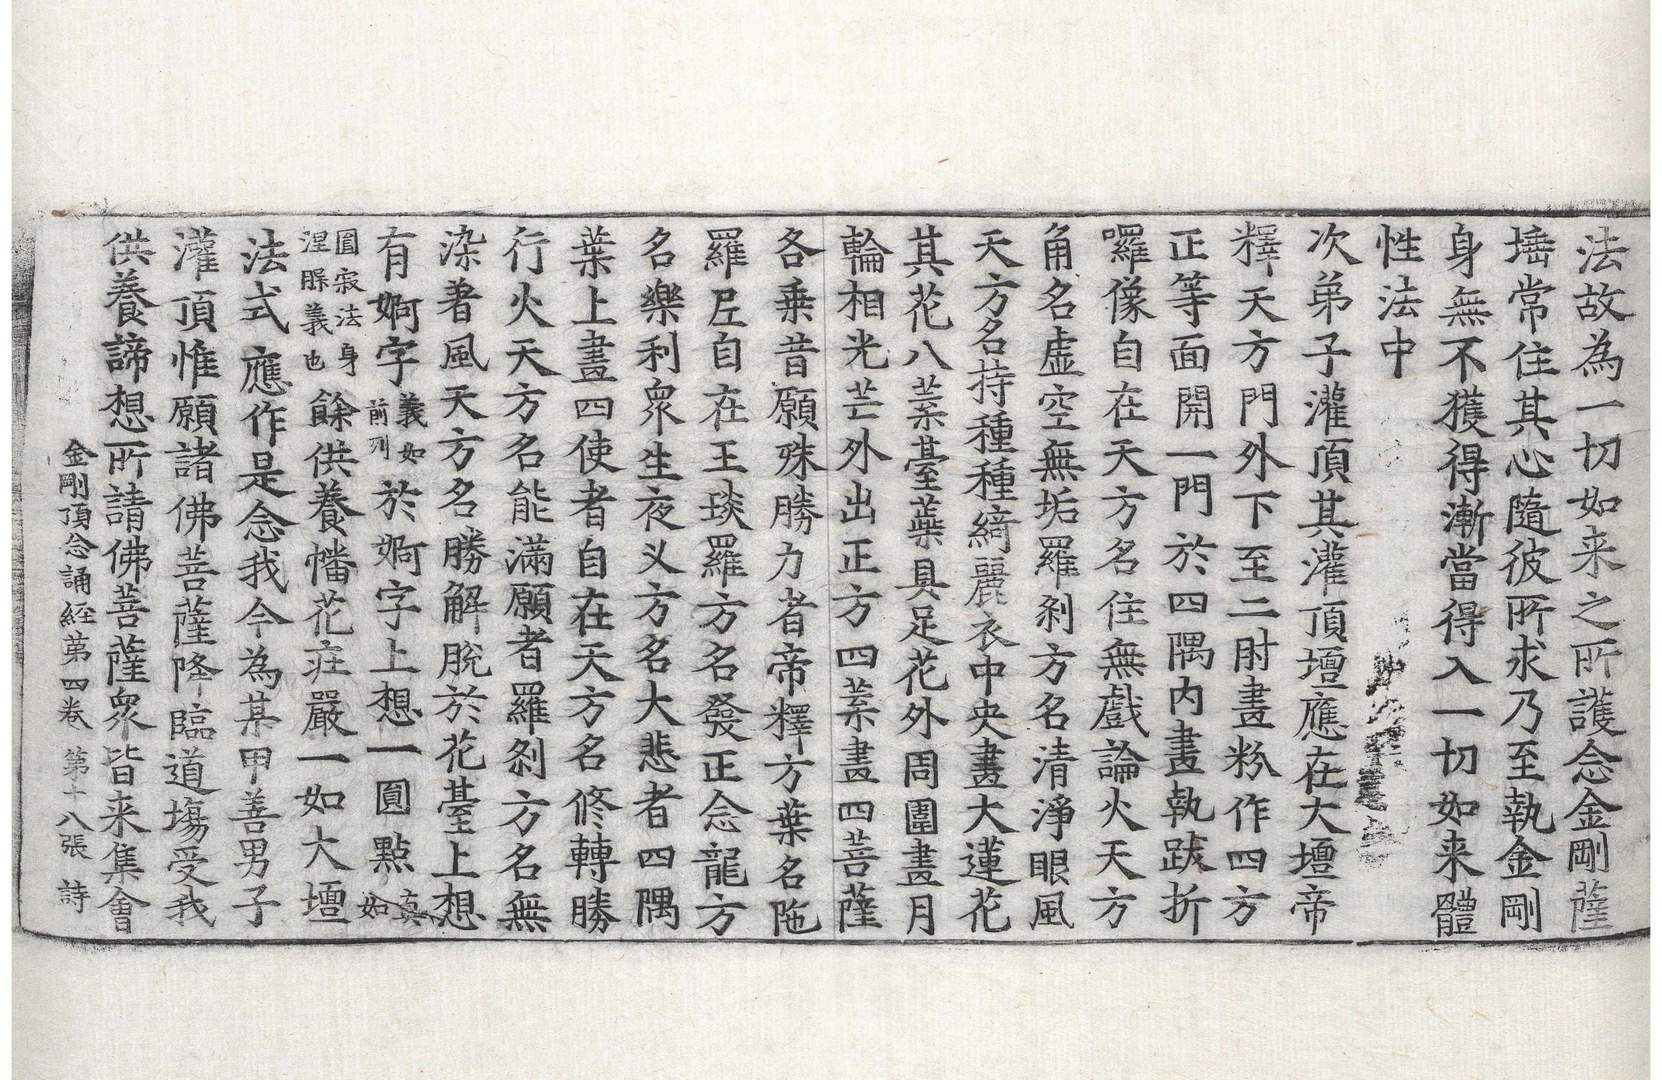 法故為一切如来之所護念金剛薩
埵常住其心隨彼所求乃至執金剛
身無不獲得漸當得入一切如来體
性法中
次弟子灌頂其灌頂壇應在大壇帝
釋天方門外下至二肘畫粉作四方
正等面開一門於四隅内畫執跋折
囉像自在天方名住無戲論火天方
角名虛空無垢羅剎方名清淨眼風
天方名持種種綺麗衣中央畫大蓮花
其花八葉臺蘂具足花外周圍畫月
輪相光芒外出正方四葉畫四菩薩
各乗昔願殊勝力者帝釋方葉名陁
羅尼自在王琰羅方名發正念龍方
名樂利衆生夜叉方名大悲者四隅
葉上畫四使者自在天方名修轉勝
行火天方名能滿願者羅剎方名無
染著風天方名勝解脫於花臺上想
有婀字義如前列於婀字上想一圓點真如
圓寂法身涅槃義也餘供養幡花莊嚴一如大壇
法式應作是念我今為某甲善男子
灌頂惟願諸佛菩薩降臨道場受我
供養諦想所請佛菩薩衆皆来集會
金剛頂念誦經第四卷 第十八張 詩